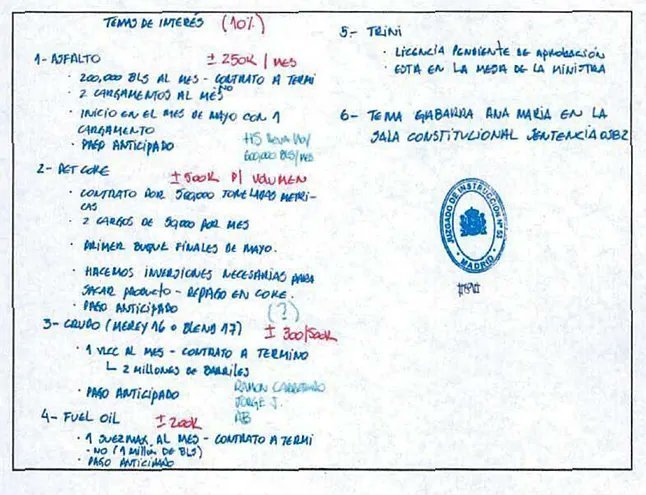 TEMAS DE INTERÉS (10%)
1- ASFALTO ± 250K / MES
· 200,000 BLS AL MES - CONTRATO A TERMI
NO
· 2 CARGAMENTOS AL MES
· INICIO EN EL MES DE MAYO CON 1
CARGAMENTO
· PAGO ANTICIPADO
600,000 BLS/MES
2- PET COKE ± 500K P/ VOLUMEN
· CONTRATO POR 500,000 TONELADAS METRI-
CAS
· 2 CARGOS DE 50,000 POR MES
· PRIMER BUQUE FINALES DE MAYO.
· HACEMOS INVERSIONES NECESARIAS PARA
SACAR PRODUCTO - REPAGO EN COKE.
· PAGO ANTICIPADO (?)
3- CRUDO (MEREY 16 O BLEND 17) ± 300/500K
· 1 VLCC AL MES - CONTRATO A TERMINO
2 MILLONES DE BARRILES
· PAGO ANTICIPADO
RAMON CARRETERO
JORGE J.
AB
4- FUEL OIL ± 200K
· 1 SUEZMAX AL MES - CONTRATO A TERMI
- NO (1 MILLON DE BLS)
· PAGO ANTICIPADO
5- TRINI
· LICENCIA PENDIENTE DE APROBACIÓN
· ESTA EN LA MESA DE LA MINISTRA
6- TEMA GABARRA ANA MARIA EN LA
SALA CONSTITUCIONAL SENTENCIA 0382
JUZGADO DE INSTRUCCION Nº 53
· MADRID ·